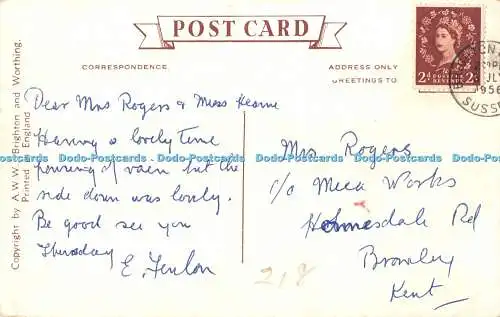 POST CARD
CORRESPONDENCE
ADDRESS ONLY
GREETINGS TO
2d POSTAGE REVENUE 2d
BRIGHTON
JL
1956
SUSSEX
Copyright by A.W.W. Brighton and Worthing.
Printed in England
Dear Mrs Rogers & Miss Kearne
Having a lovely time
pouring of rain but the
ride down was lovely.
Be good see you
Thursday
E. Fenlon
Mrs Rogers
c/o Meca Works
Holmesdale Rd
Bromley
Kent
218
Dodo-Postcards Dodo-Postcards Dodo-Postcards Dodo-Postcards Dodo-Postcards